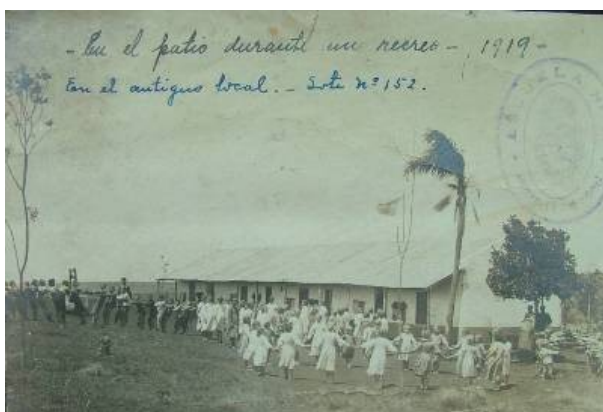 - En el patio durante un recreo -, 1919 -
En el antiguo local. - Lote Nº 152.
ESCUELA